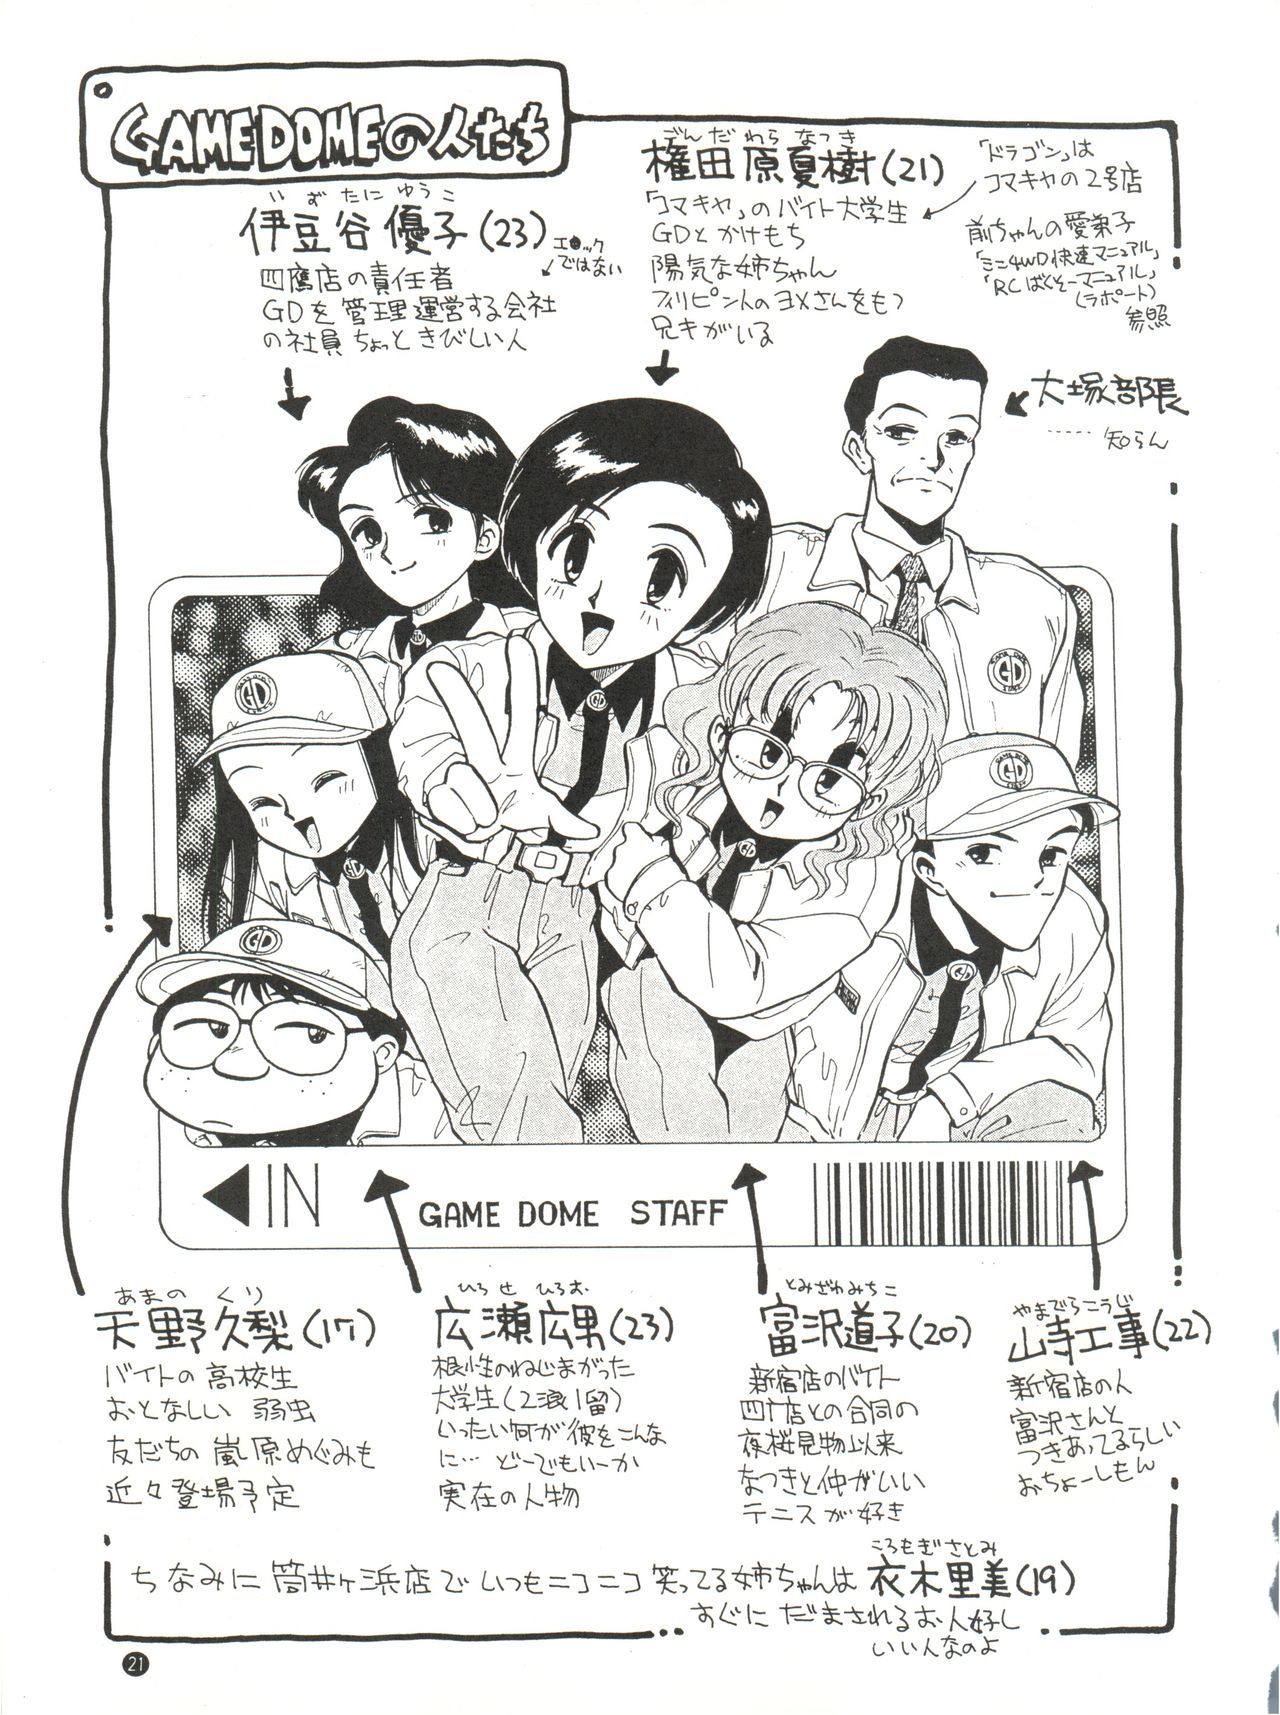 GAME DOMEの人たち
いずたに ゆうこ
伊豆谷 優子(23)
四鷹店の責任者
GDを管理運営する会社
の社員 ちょっときびしい人
ではない
ごんだわら なつき
権田原夏樹(21)
「コマキヤ」のバイト大学生
GDとかけもち
陽気な姉ちゃん
フィリピン人のヨメさんをもつ
兄キがいる
「ドラゴン」は
コマキヤの2号店
前ちゃんの愛弟子
「ミニ4WD快速マニュアル」
「RCばくそーマニュアル」
(ラポート)
参照
大塚部長
……知らん
GD
◀IN
GAME DOME STAFF
あまの くり
天野久梨(17)
バイトの高校生
おとなしい 弱虫
友だちの嵐原めぐみも
近々登場予定
ひろせ ひろお
広瀬広男(23)
根性のねじまがった
大学生(2浪1留)
いったい何が彼をこんな
に… どーでもいーか
実在の人物
とみざわみちこ
富沢道子(20)
新宿店のバイト
四鷹店との合同の
夜桜見物以来
なつきと仲がいい
テニスが好き
やまでらこうじ
山寺工事(22)
新宿店の人
富沢さんと
つきあってるらしい
おちょーしもん
ちなみに 筒井ヶ浜店で いつもニコニコ 笑ってる姉ちゃんは
ころもぎさとみ
衣木里美(19)
すぐに だまされるお人好し
いい人なのよ
21